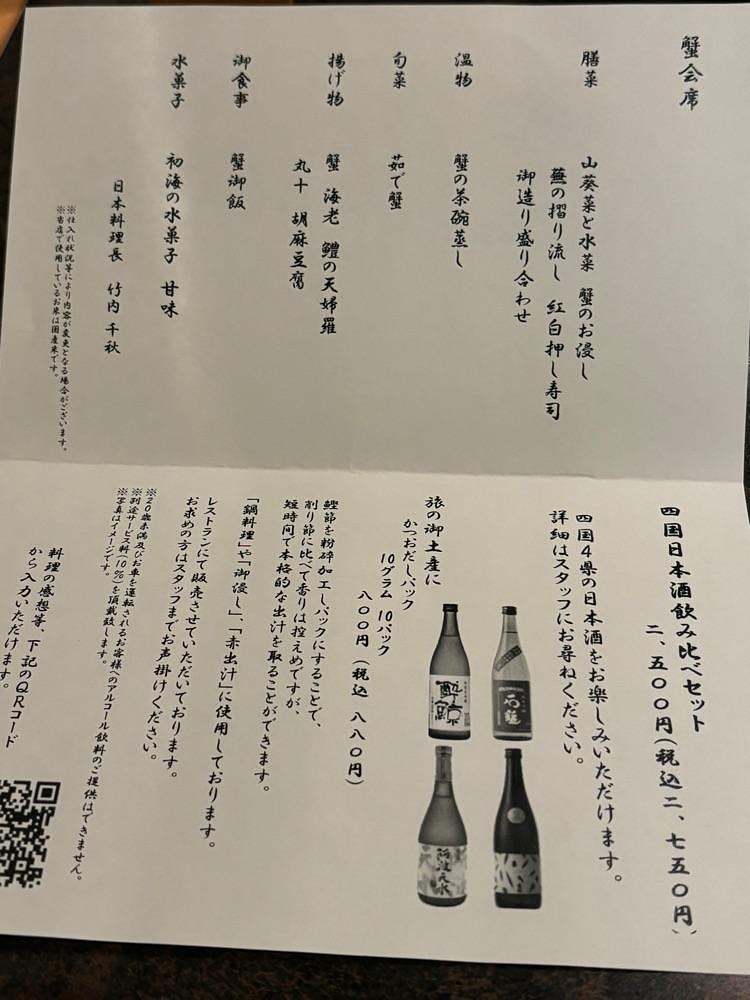 蟹会席
膳菜 山葵菜と水菜 蟹のお浸し
蕪の摺り流し 紅白押し寿司
御造り盛り合わせ
温物 蟹の茶碗蒸し
旬菜 茹で蟹
揚げ物 蟹 海老 鱧の天婦羅
丸十 胡麻豆腐
御食事 蟹御飯
水菓子 初海の水菓子 甘味
日本料理長 竹内 千秋
※仕入れ状況等により内容が変更となる場合がございます。
※当店で使用しているお米は国産米です。
四国日本酒飲み比べセット
二、五〇〇円(税込二、七五〇円)
四国4県の日本酒をお楽しみいただけます。
詳細はスタッフにお尋ねください。
酔鯨
阿波乃水
旅の御土産に
かつおだしパック
10グラム 10パック
八〇〇円(税込 八八〇円)
鰹節を粉砕加工しパックにすることで、
削り節に比べて香りは控えめですが、
短時間で本格的な出汁を取ることができます。
「鍋料理」や「御浸し」、「赤出汁」に使用しております。
レストランにて販売させていただいております。
お求めの方はスタッフまでお声掛けください。
※20歳未満及びお車を運転されるお客様へのアルコール飲料のご提供はできません。
※別途サービス料(10%)を頂戴致します。
※写真はイメージです。
料理の感想等、下記のQRコード
から入力いただけます。